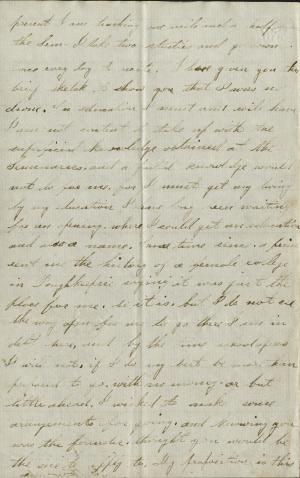 present I am teaching one mile and a half from
the Sem. I take two studies and go down
once every day to recite. I have given you this
brief sketch to show you that I was in
An education I must and will have
I am not content to take up with the
superficial knowledge obtained at the
Seminaries, and a partial knowledge would
not do for me, for I must get my living
by my education I have long been waiting
for an opening, where I could get an education
and also a name. Some time since, a friend
sent me the history of a female college
in Poughkeepsie saying it was just the
place for me. So it is, but I do not see
the way open for me to go there. I am in
debt here, and by the time
I will not, if I do my best be more than
prepared to go, with no money or but
little ahead. I wished to make some
arrangements for going, and knowing you
was the founder, thought you would be
the one to apply to. My proposition is this